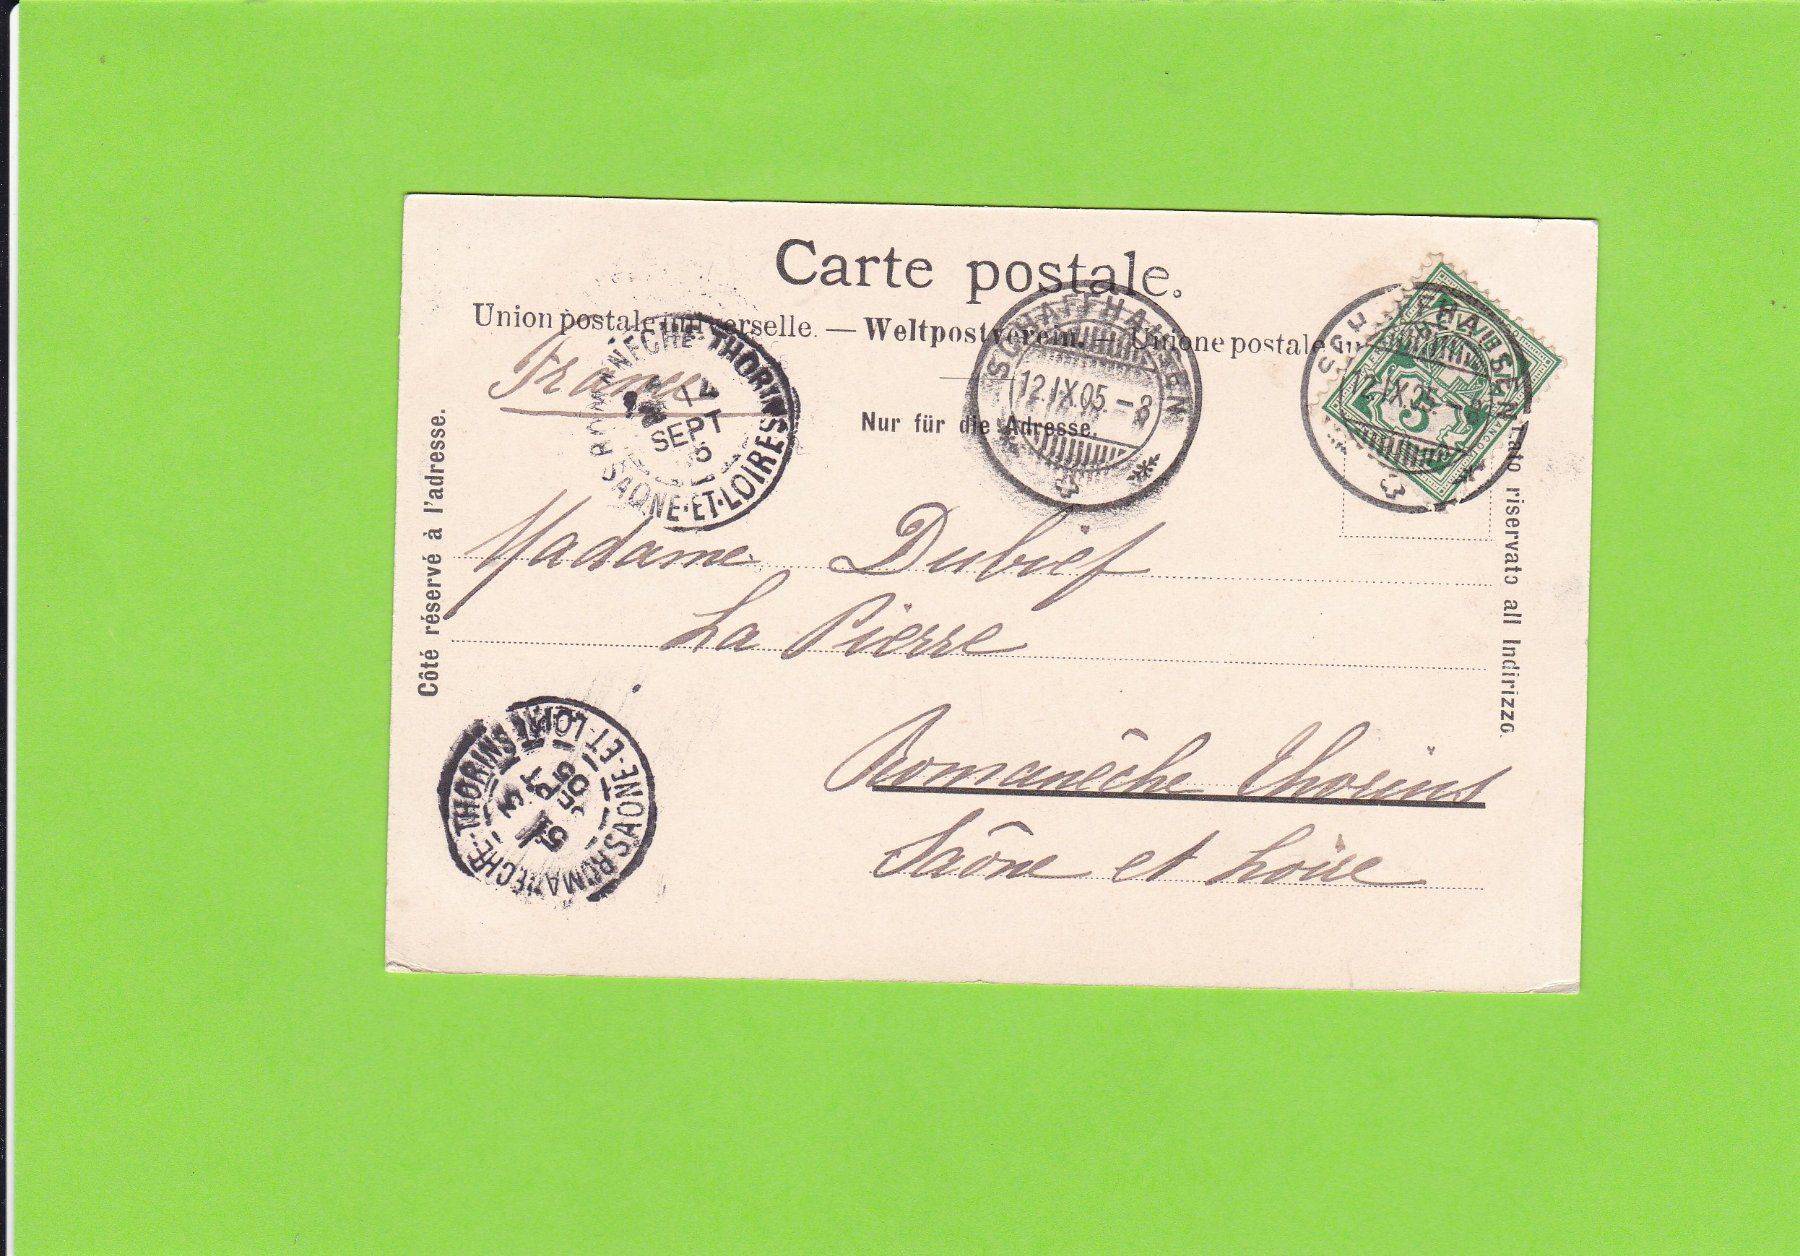 Carte postale.
Union postale universelle. — Weltpostverein. — Unione postale
France
Nur für die Adresse.
Côté réservé à l'adresse.
Lato riservato all Indirizzo.
SCHAFFHAUSEN
12.IX.05.-8
SCHAFFHAUSEN
12.IX.05.-8
5
FRANCO
ROMANÈCHE-THORINS
SEPT
SAONE-ET-LOIRE
Madame Dubief
La Pierre
Romanêche Thorins
Saône et Loire
ROMANÈCHE-THORINS
13
SEPT
05
SAONE-ET-LOIRE